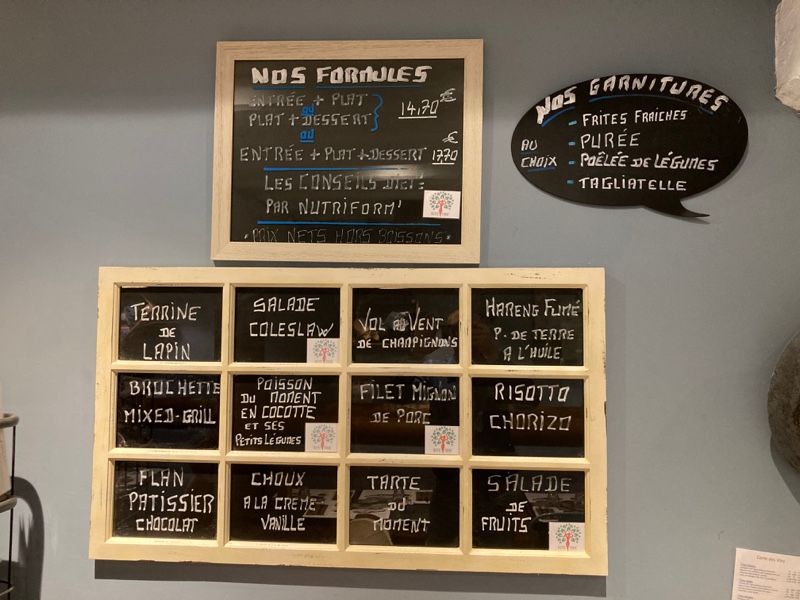 NOS FORMULES
ENTRÉE + PLAT
OU
PLAT + DESSERT
14,70 €
OU
ENTRÉE + PLAT + DESSERT 17,70 €
LES CONSEILS DIET:
PAR NUTRIFORM'
• PRIX NETS HORS BOISSONS •
NOS GARNITURES
AU CHOIX
- FRITES FRAICHES
- PURÉE
- POÊLÉE DE LÉGUMES
- TAGLIATELLE
TERRINE
DE
LAPIN
SALADE
COLESLAW
VOL AU VENT
DE CHAMPIGNONS
HARENG FUMÉ
P. DE TERRE
A L'HUILE
BROCHETTE
MIXED-GRILL
POISSON
DU MOMENT
EN COCOTTE
ET SES
PETITS LÉGUMES
FILET MIGNON
DE PORC
RISOTTO
CHORIZO
FLAN
PATISSIER
CHOCOLAT
CHOUX
A LA CREME
VANILLE
TARTE
DU
MOMENT
SALADE
DE
FRUITS
Carte des Vins